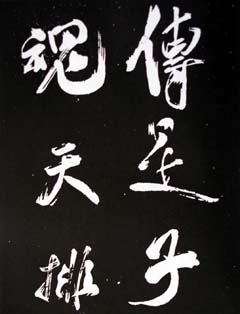 傳是子
魂天排